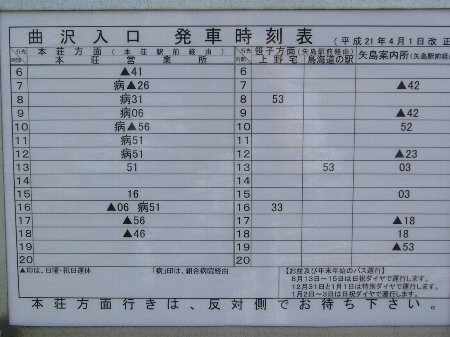 曲沢入口 発車時刻表 (平成21年4月1日改正
行先 本荘方面(本荘駅前経由) 行先 笹子方面(矢島駅前経由)
時間 本荘営業所 時間 上野宅 鳥海道の駅 矢島案内所(矢島駅前経
6 ▲41 6
7 病▲26 7 ▲42
8 病31 8 53
9 病06 9 ▲42
10 病▲56 10 52
11 病51 11
12 病51 12 ▲23
13 51 13 53 03
14 14
15 16 15 03
16 ▲06 病51 16 33
17 ▲56 17 ▲18
18 ▲46 18 18
19 19 ▲53
20 20
▲印は、日曜・祝日運休 「病」印は、組合病院経由 【お盆及び年末年始のバス運行】
8月13日～15日は日祝ダイヤで運行します。
12月31日と1月1日は特別ダイヤで運行します。
1月2日～3日は日祝ダイヤで運行します。
本荘方面行きは、反対側でお待ち下さい。